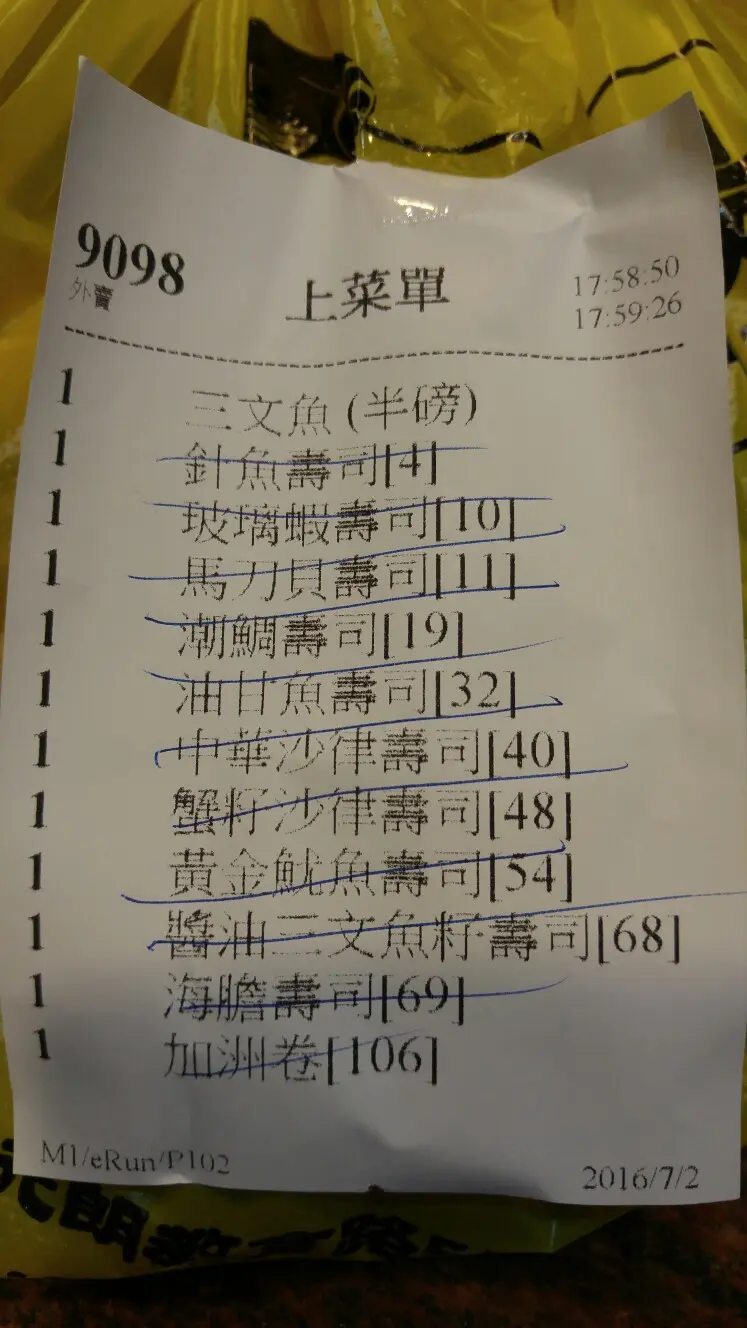 9098
外賣
上菜單
17:58:50
17:59:26
1 三文魚 (半磅)
1 針魚壽司[4]
1 玻璃蝦壽司[10]
1 馬刀貝壽司[11]
1 潮鯛壽司[19]
1 油甘魚壽司[32]
1 中華沙律壽司[40]
1 蟹籽沙律壽司[48]
1 黃金魷魚壽司[54]
1 醬油三文魚籽壽司[68]
1 海膽壽司[69]
1 加洲卷[106]
M1/eRun/P102
2016/7/2
朗教育路